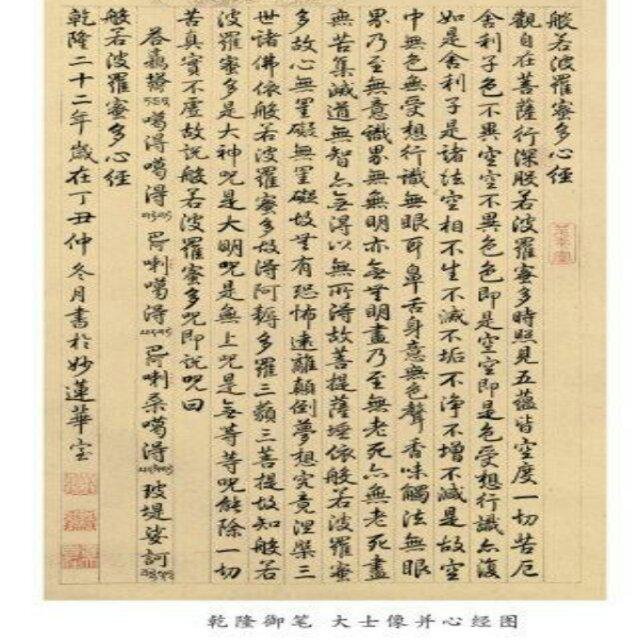 般若波羅蜜多心經
觀自在菩薩行深般若波羅蜜多時照見五蘊皆空度一切苦厄
舍利子色不異空空不異色色即是空空即是色受想行識亦復
如是舍利子是諸法空相不生不滅不垢不淨不增不減是故空
中無色無受想行識無眼耳鼻舌身意無色聲香味觸法無眼
界乃至無意識界無無明亦無無明盡乃至無老死亦無老死盡
無苦集滅道無智亦無得以無所得故菩提薩埵依般若波羅蜜
多故心無罣礙無罣礙故無有恐怖遠離顛倒夢想究竟涅槃三
世諸佛依般若波羅蜜多故得阿耨多羅三藐三菩提故知般若
波羅蜜多是大神咒是大明咒是無上咒是無等等咒能除一切
苦真實不虛故說般若波羅蜜多咒即說咒曰
答嘉塔噶得噶得喇噶得喇桑噶得玻堤娑訶
般若波羅蜜多心經
乾隆二十二年歲在丁丑仲冬月書於妙蓮華室
乾隆御笔 大士像并心经图